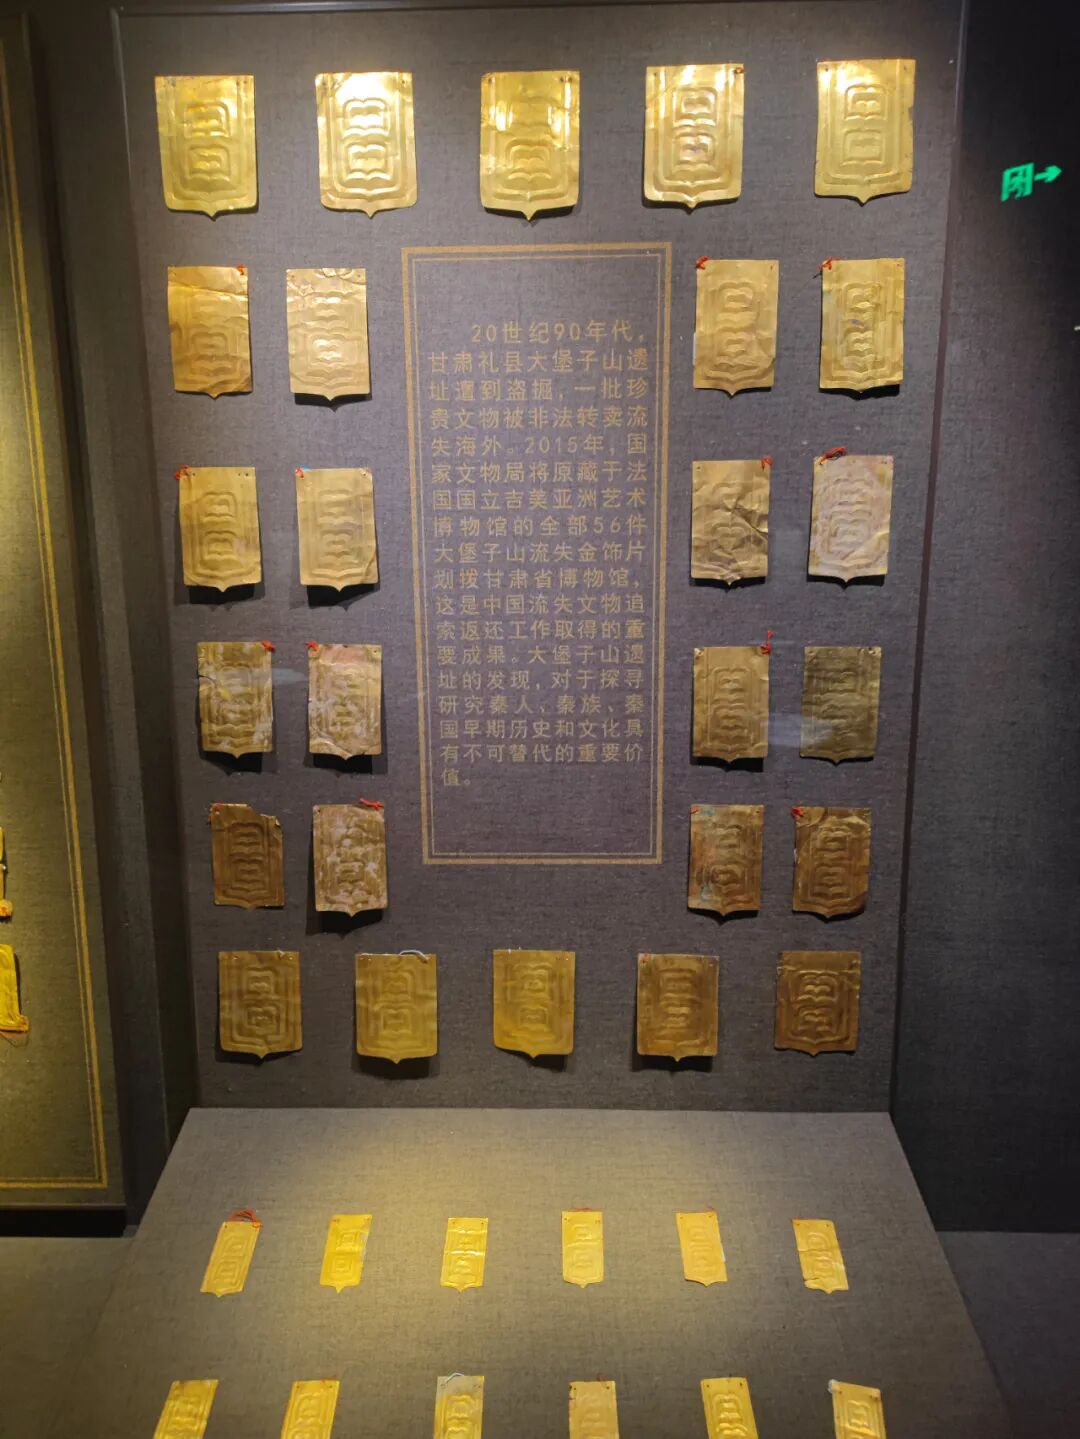 20世纪90年代，
甘肃礼县大堡子山遗
址遭到盗掘，一批珍
贵文物被非法转卖流
失海外。2015年，国
家文物局将原藏于法
国国立吉美亚洲艺术
博物馆的全部56件
大堡子山流失金饰片
划拨甘肃省博物馆，
这是中国流失文物追
索返还工作取得的重
要成果。大堡子山遗
址的发现，对于探寻
研究秦人、秦族、秦
国早期历史和文化具
有不可替代的重要价
值。